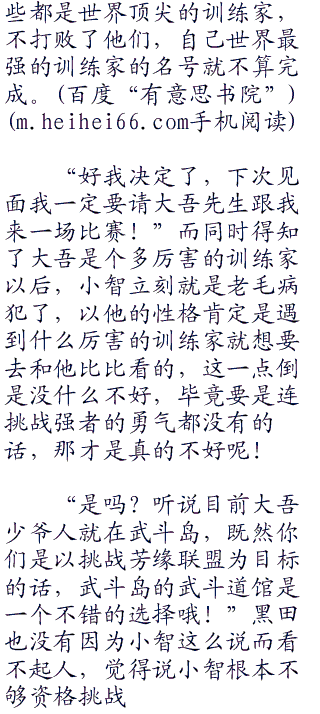 些都是世界顶尖的训练家，
不打败了他们，自己世界最
强的训练家的名号就不算完
成。(百度“有意思书院”)
(m.heihei66.com手机阅读)
“好我决定了，下次见
面我一定要请大吾先生跟我
来一场比赛！”而同时得知
了大吾是个多厉害的训练家
以后，小智立刻就是老毛病
犯了，以他的性格肯定是遇
到什么厉害的训练家就想要
去和他比比看的，这一点倒
是没什么不好，毕竟要是连
挑战强者的勇气都没有的
话，那才是真的不好呢！
“是吗？听说目前大吾
少爷人就在武斗岛，既然你
们是以挑战芳缘联盟为目标
的话，武斗岛的武斗道馆是
一个不错的选择哦！”黑田
也没有因为小智这么说而看
不起人，觉得说小智根本不
够资格挑战